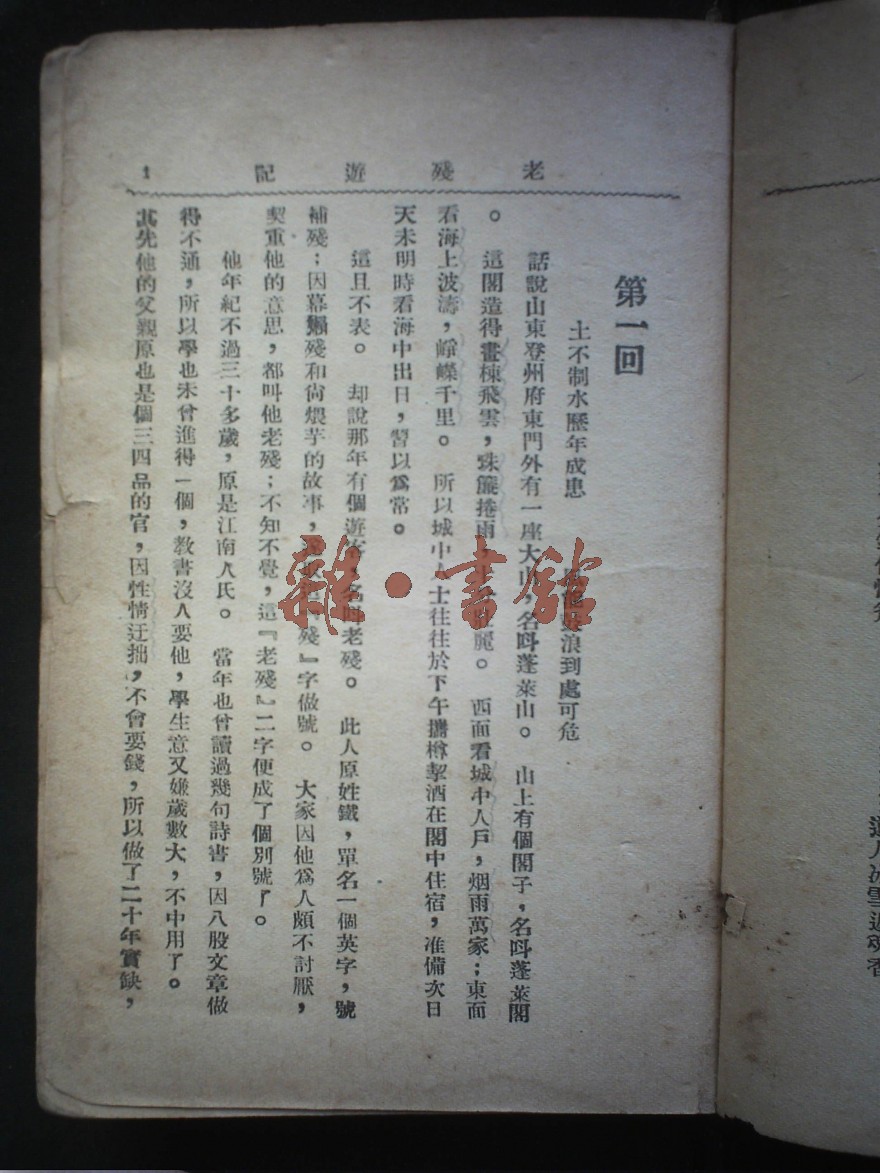 老殘遊記 1
第一回
土不制水歷年成患 浪到處可危
話說山東登州府東門外有一座大山，名叫蓬萊山。山上有個閣子，名叫蓬萊閣
。這閣造得畫棟飛雲，珠簾捲雨，麗。西面看城中人戶，烟雨萬家；東面
看海上波濤，崢嶸千里。所以城中人士往往於下午攜樽挈酒在閣中住宿，准備次日
天未明時看海中出日，習以爲常。
這且不表。却說那年有個遊客，名叫老殘。此人原姓鐵，單名一個英字，號
補殘；因慕懶殘和尚煨芋的故事，殘』字做號。大家因他爲人頗不討厭，
契重他的意思，都叫他老殘；不知不覺，這『老殘』二字便成了個別號了。
他年紀不過三十多歲，原是江南人氏。當年也曾讀過幾句詩書，因八股文章做
得不通，所以學也未曾進得一個，教書沒人要他，學生意又嫌歲數大，不中用了。
其先他的父親原也是個三四品的官，因性情迂拙，不會要錢，所以做了二十年實缺，
雜·書館